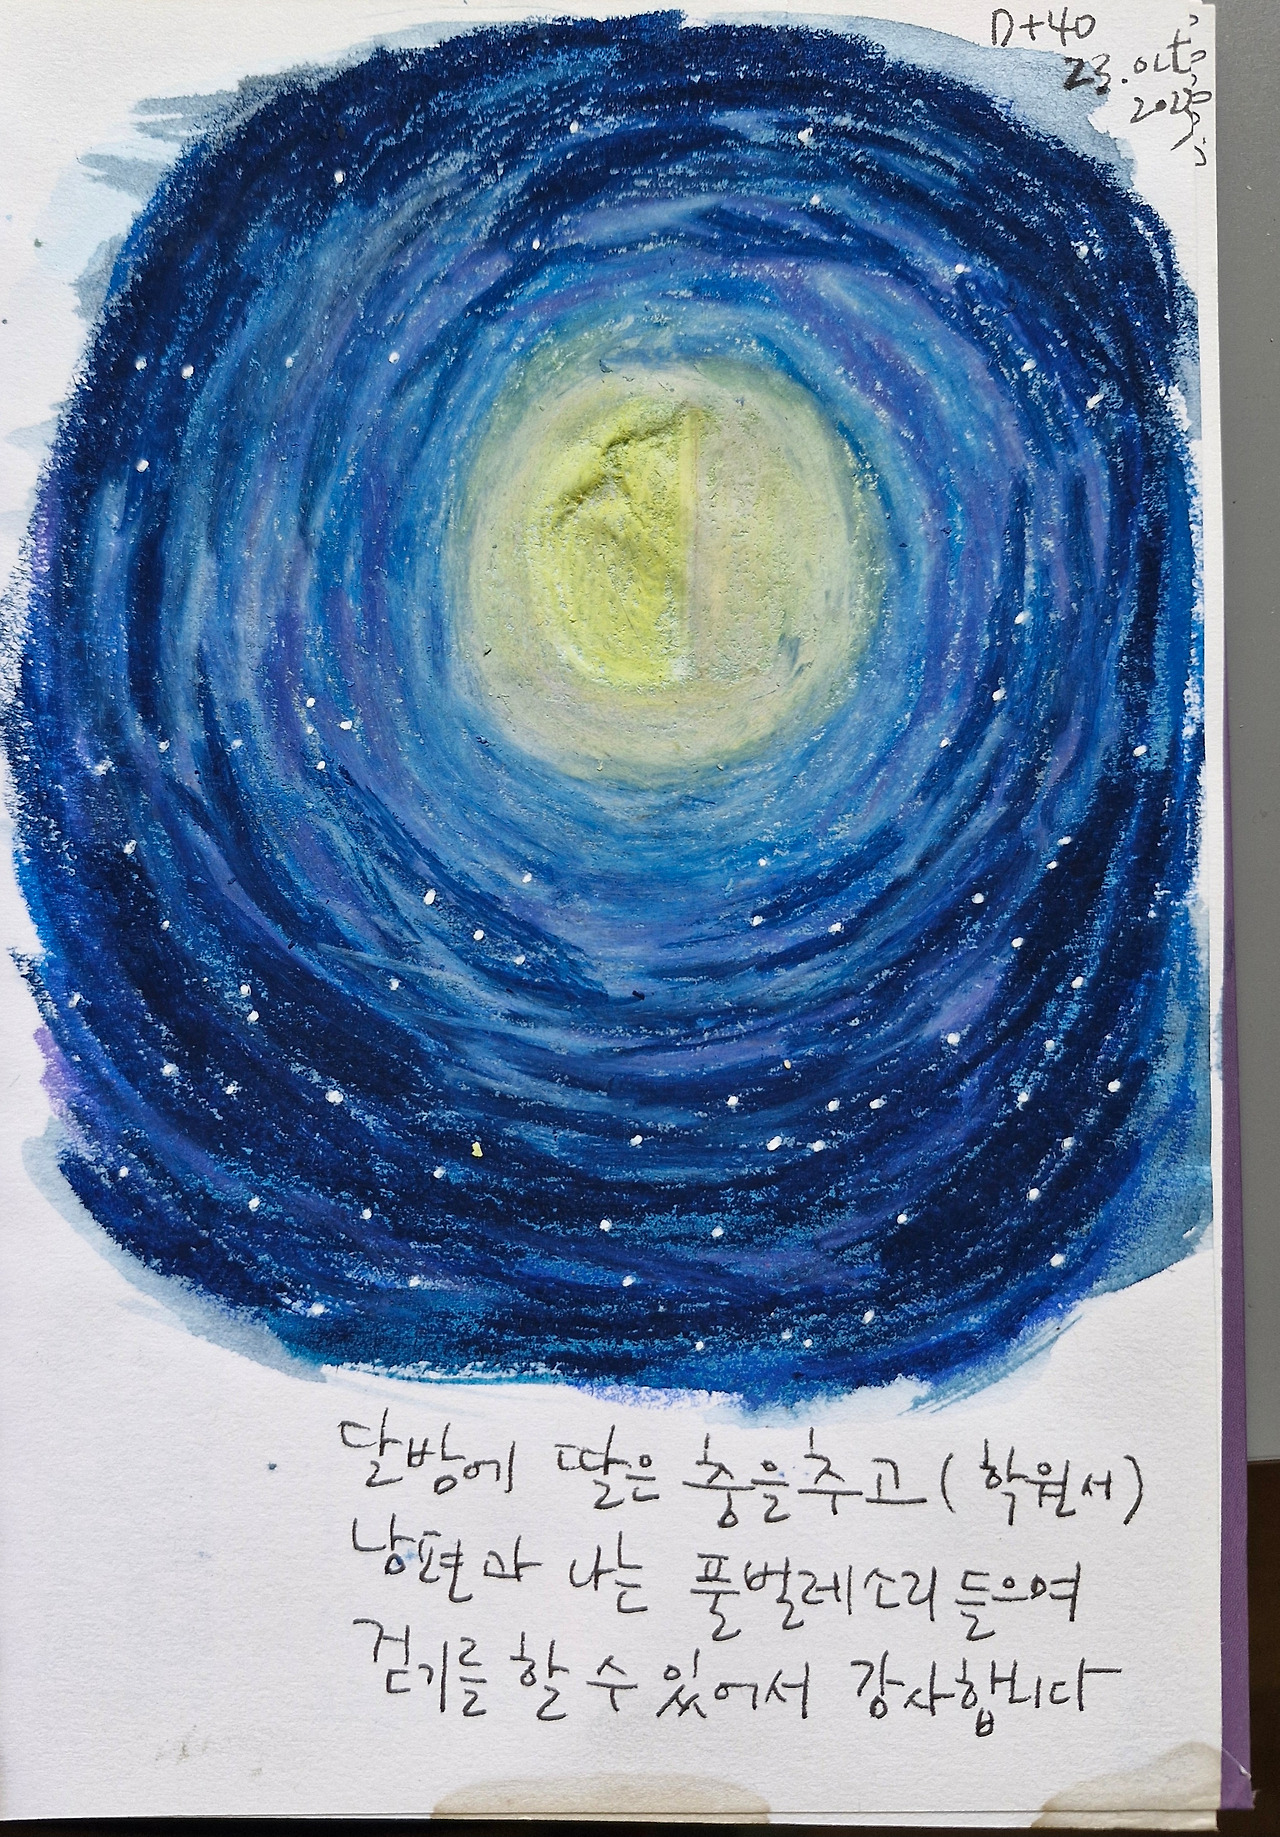 D+40
23.Oct
달밤에 딸은 춤을추고 (학원서)
남편과 나는 풀벌레소리 들으며
걷기를 할 수 있어서 감사합니다